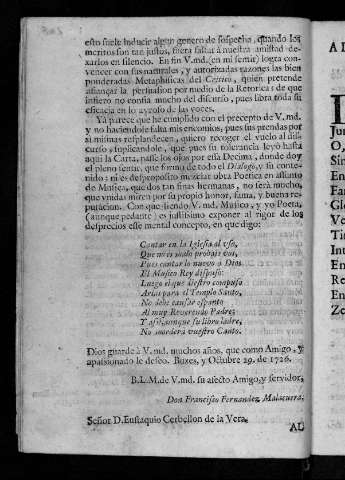 esto suele inducir algun genero de sospecha, quando los
meritos son tan justos, fuera faltar à nuestra amistad de-
xarlos en silencio. En fin V.md. (en mi sentir) logra con-
vencer con sus naturales, y autorizadas razones las bien
ponderadas Metaphisicas del Critico, quien pretende
afiançar la persuasion por medio de la Retorica; de que
infiero no confia mucho del discurso, pues libra toda su
eficacia en lo de las voces.
Yà parece que he cumplido con el precepto de V.md.
y no haciendole falta mis encomios, pues sus prendas por
si mismas resplandecen, quiero recoger el vuelo al dis-
curso, suplicandole, que pues su tolerancia leyò hasta
aqui la Carta, passe los ojos por esta Decima, donde doy
el pleno sentir, que formo de todo el Dialogo, y su conte-
nido: ni es desproposito mezclar obra Poetica en assunto
de Musica, que dos tan finas hermanas, no serà mucho,
que vnidas miren por su propio honor, fama, y buena re-
putacion. Con que siendo V.md. Musico, y yo Poeta,
(aunque pedante) es justissimo exponer al rigor de los
desprecios esse mental concepto, en que digo:
Cantar en la Iglesia al vso,
Que no es malo probais vos,
Pues cantar lo nuevo à Dios
El Musico Rey dispuso:
Luego el que diestro compuso
Arias para el Templo Santo,
No debe causar espanto
Al muy Reverendo Padre;
Y assi, aunque su libro ladre,
No morderà vuestro Canto.
Dios guarde à V.md. muchos años, que como Amigo, y
apassionado le deseo. Buxes, y Octubre 29. de 1726.
B.L.M. de V.md. su afecto Amigo, y servidor,
Don Francisco Fernandez Malacuera.
Señor D. Eustaquio Cerbellon de la Vera.
AL
A L
Jun
O,
Sin
En
Fa
Glo
Ve
Ti
Int
En
Re
En
Ze